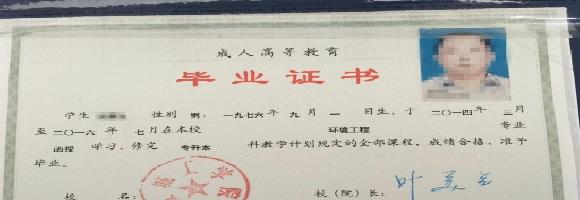 成人高等教育
毕业证书
学生 性别 男, 一九七六年 九 月 一 日生, 于 二〇一四年 三月
至 二〇一六 年 七月在本校 环境工程 专业
函授 学习, 修完 专升本 科教学计划规定的全部课程, 成绩合格, 准予
毕业。
校 名: 校(院)长: